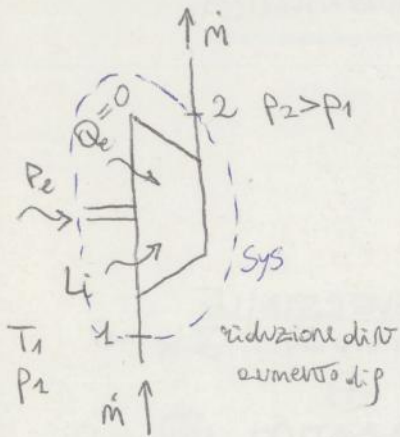 ṁ
2 p₂>p₁
Qₑ=0
Pₑ
Li
Sys
T₁
p₁
1
riduzione di v
aumento di ρ
ṁ